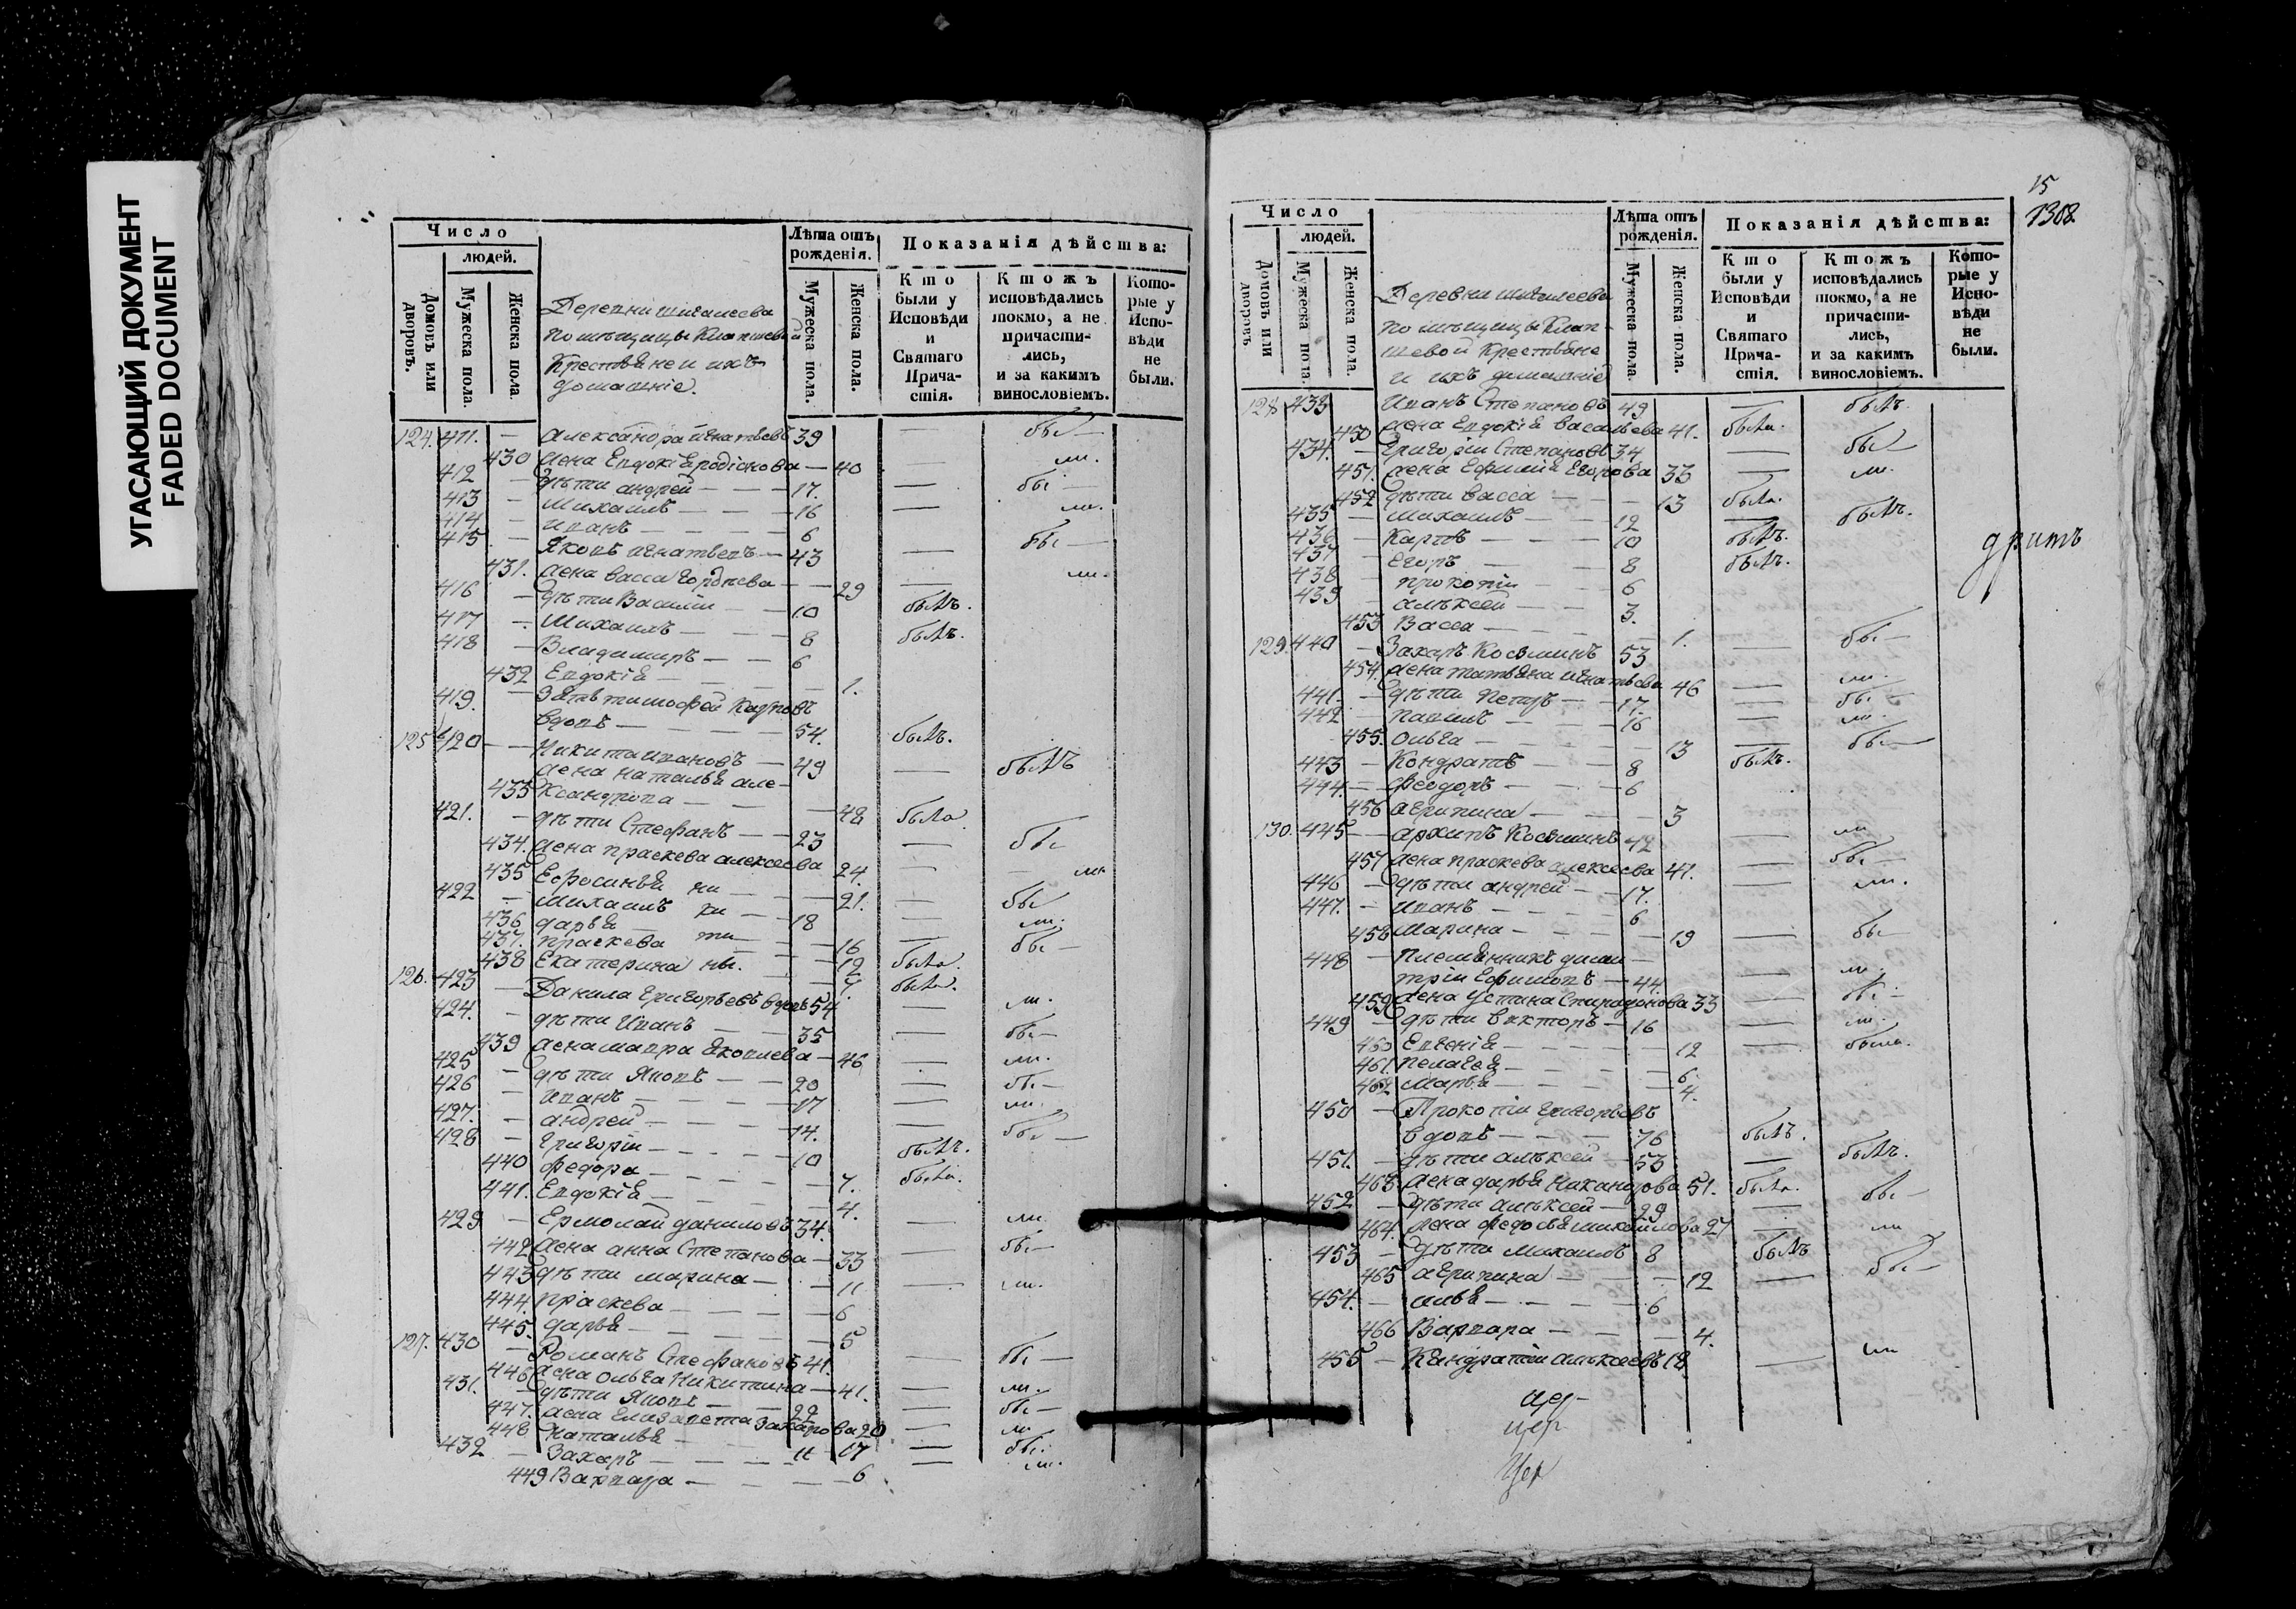 УГАСАЮЩИЙ ДОКУМЕНТ
FADED DOCUMENT
Число
людей.
Домовъ или дворовъ.
Мужеска пола.
Женска пола
помѣщицы
Крестьяне и ихъ
домашніе.
Лѣта отъ рожденія.
Мужеска пола.
Женска пола.
Показанія дѣйства:
Кто были у Исповѣди и Святаго Причастія.
Ктожъ исповѣдались токмо, а не причастились, и за какимъ винословіемъ.
Которые у Исповѣди не были.
124. 411. – Александра Игнатьевъ 39 — бы—
430 жена Евдокія Родіонова — 40 ли.
412 – дѣти Андрей — 17. — бы
413 – Михаилъ — 16 — ли.
414 – Иванъ — 6
415 – Яковъ Игнатьевъ — 43 — бы—
431. жена Васса Гордѣева — 29 — ли.
416 – дѣти Василіи — 10 былъ.
417 – Михаилъ — 8 былъ.
418 – Владимиръ — 6
432 Евдокія — 1.
419. – Зять Тимофей Карповъ
вдовъ — 54. былъ.
125 420 – Никита Ивановъ — 49 — былъ
жена Наталья Але-
433 ксандрова — 48 была
421. – дѣти Стефанъ — 23 — бы
434. жена Праскева Алексеева 24. — ли
435 Ефросинья — 21. — бы
422 – Михаилъ — 18 — ли.
436 Дарья — 16 — бы—
437. Праскева — 12 была.
438 Екатерина — 7. была.
126. 423 – Данила Григорьевъ вдовъ 54 — ли.
424. – дѣти Иванъ — 35 — бы—
439 жена Мавра Яковлева — 46 — ли.
425 – дѣти Яковъ — 20 — бы—
426 – Иванъ — 17 — ли.
427. – Андрей — 14. — бы—
428 – Григоріи — 10 былъ.
440 Федора — 7. была.
441. Евдокія — 4.
429 – Ермолай Даниловъ 34. — ли
442 жена Анна Степанова — 33 — бы—
443 дѣти Марина — 11 — ли.
444. Праскева — 6
445. Дарья — 5
127. 430 – Романъ Стефановъ 41. — бы—
446 жена Ольга Никитина — 41. — ли.
431. – дѣти Яковъ — 22 — бы—
447. жена Елизавета Захарова 20 — ли
448 Наталья — 17 — бы.
432 – Захаръ — 11 — ли.
449 Варвара — 6
15
1308
Число
людей.
Домовъ или дворовъ.
Мужеска пола.
Женска пола.
помѣщицы
Крестьяне
и ихъ домашніе
Лѣта отъ рожденія.
Мужеска пола.
Женска пола.
Показанія дѣйства:
Кто были у Исповѣди и Святаго Причастія.
Ктожъ исповѣдались токмо, а не причастились, и за какимъ винословіемъ.
Которые у Исповѣди не были.
128 433 Иванъ Степановъ 49 — былъ.
450 жена Евдокія Васильева 41. была.
434. – Григоріи Степановъ 34 — бы
451. жена Ефимия Егорова 33 — ли.
452 дѣти Васса — 13 была.
435 – Михаилъ — 12 — былъ.
436 – Карпъ — 10 былъ.
437 – Егоръ — 8 былъ.
438 – Прокопіи — 6
439 – Алѣксей — 3.
453 Васса — 1.
129. 440 – Захаръ Косминъ 53 — бы—
454. жена Татьяна Игнатьева 46 — ли.
441. – дѣти Петръ — 17. — бы
442 – Павилъ — 16 — ли.
455. Ольга — 13 — бы—
443 – Кондратъ — 8 былъ.
444. – Феодоръ — 6
456 Агрипина — 3
130. 445 – Архипъ Косминъ 42 — ли
457 жена Праскева Алексеева 41. — бы—
446 – дѣти Андрей — 17. — ли.
447. – Иванъ — 6
458 Марина — 19 — бы—
448 – Племянникъ Дими-
трій Ефимовъ — 44. — ли.
459 жена Устина Спиридонова 33 — бы—
449 – дѣти Викторъ — 16 — ли.
460 Евгенія — 12 — была.
461. Пелагея — 6.
462 Марья — 4.
450 – Прокопіи Григорьевъ
вдовъ — 76 былъ.
451. – дѣти Алѣксей — 53 — былъ.
463. жена Дарья Никанорова 51. была.
452 – дѣти Алѣксей — 29 — бы—
464. жена Федосья Михайлова 27 — ли
453 – дѣти Михаилъ 8 былъ
465 Агрипина — 12 — бы—
454. – Илья — 6
466 Варвара — 4.
455 – Кандратіи Алѣксеевъ 18. — ли